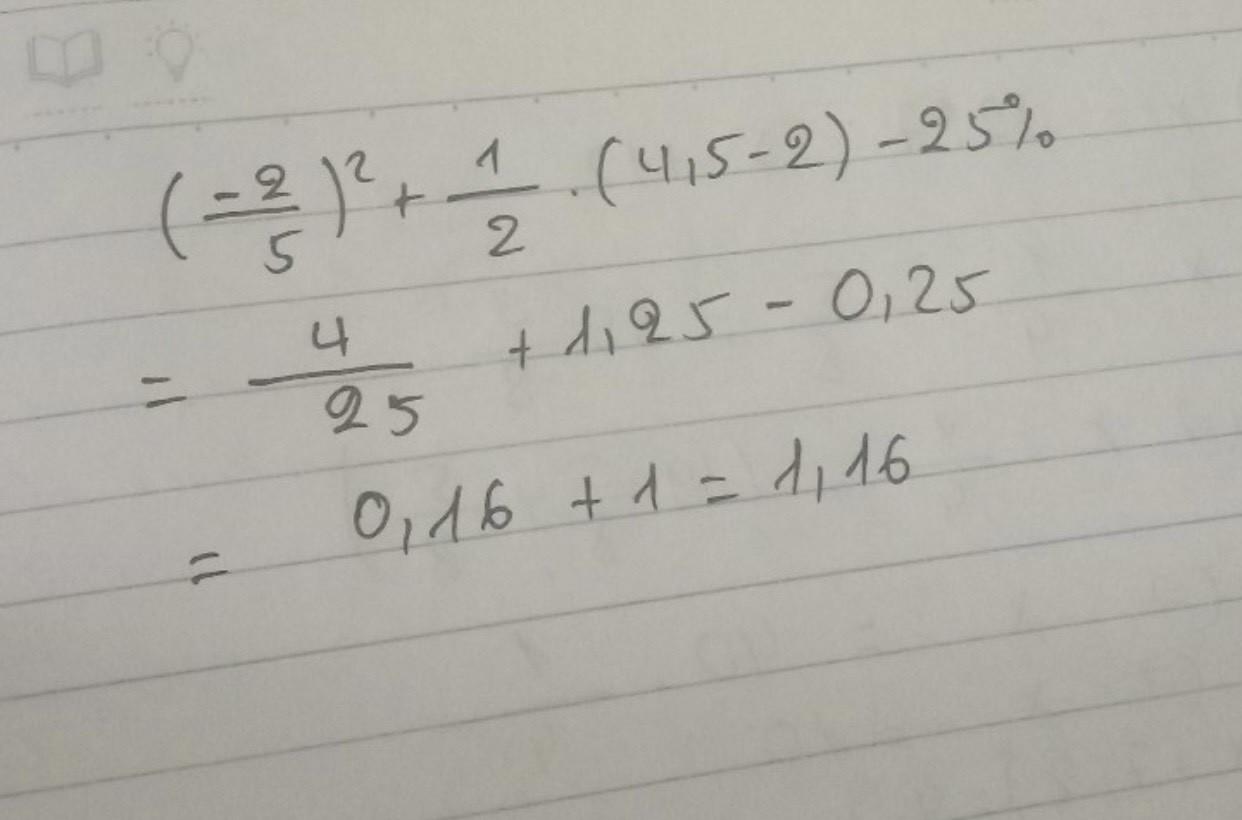 (-2/5)² + 1/2 . (4,5-2) - 25%
= 4/25 + 1,25 - 0,25
= 0,16 + 1 = 1,16